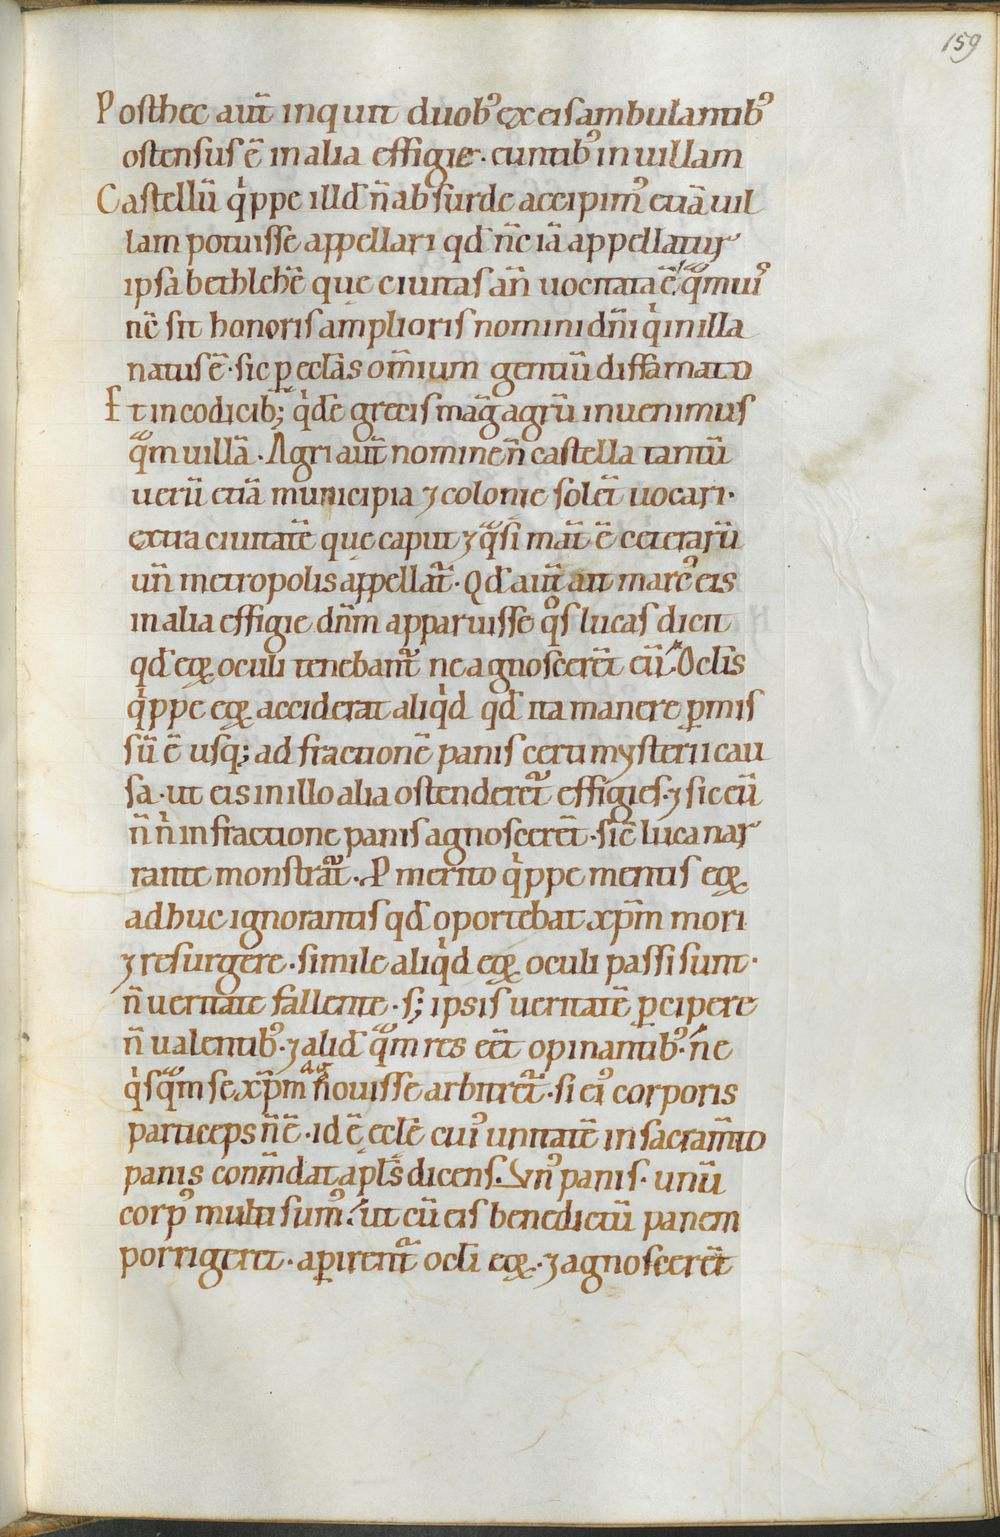 159
Posthec aut̄ inquit duobꝰ ex eis ambulantibꝰ
ostensus ē in alia effigie. euntibꝰ in uillam
Castellū qͥppe illđ n̄ absurde accipimꝰ etiā uil
lam potuisse appellari qđ n̄c iā appellatur
ipsa bethlehē que ciuitas añ uocitata ē. qͣmuiꝰ
n̄c sit honoris amplioris nomini dn̄i qͥ in illa
natus ē. sic ꝑ ecclās om̄ium gentiū diffamato
Et in codicib; qͥdē grecis mag̃ agrū inuenimus
qͣm uillā. Agri aut̄ nomine n̄ castella tantū
uerū etiā municipia ⁊ colonie solēt uocari.
extra ciuitatē que caput ⁊ qͣsi mat̄ ē ceterarū
un̄ metropolis appellat᷑. Qđ aut̄ ait marcꝰ eis
in alia effigie dn̄m apparuisse qͦs lucas dicit
qđ eoꝝ oculi tenebant᷑ ne agnoscerēt eū. Oclis̄
qͥppe eoꝝ acciderat aliqͥd qđ ita manere ꝑmis
sū ē usq; ad fractionē panis certi mysterii cau
sa. ut eis in illo alia ostenderet᷑ effigies. ⁊ sic eū
n̄ nͥ in fractione panis agnoscerēt. sic̄ luca nar
rante monstrat᷑. P merito qͥppe mentis eoꝝ
adhuc ignorantis qđ oportebat xp̄m mori
⁊ resurgere. simile aliqͥd eoꝝ oculi passi sunt.
n̄ ueritate fallente. s; ipsis ueritatē ꝑcipere
n̄ ualentibꝰ. ⁊ aliđ qͣm res eēt opinantibꝰ. ne
qͥsqͣm se xp̄m agnouisse arbitret᷑. si eiꝰ corporis
particeps n̄ ē. id ē ecclē cuiꝰ unitatē in sacram̄to
panis conm̄dat apls̄ dicens. Vnꝰ panis. unū
corpꝰ multi sumꝰ. ut cū eis benedictū panem
porrigeret. aꝑirent᷑ ocli eoꝝ. ⁊ agnoscerēt